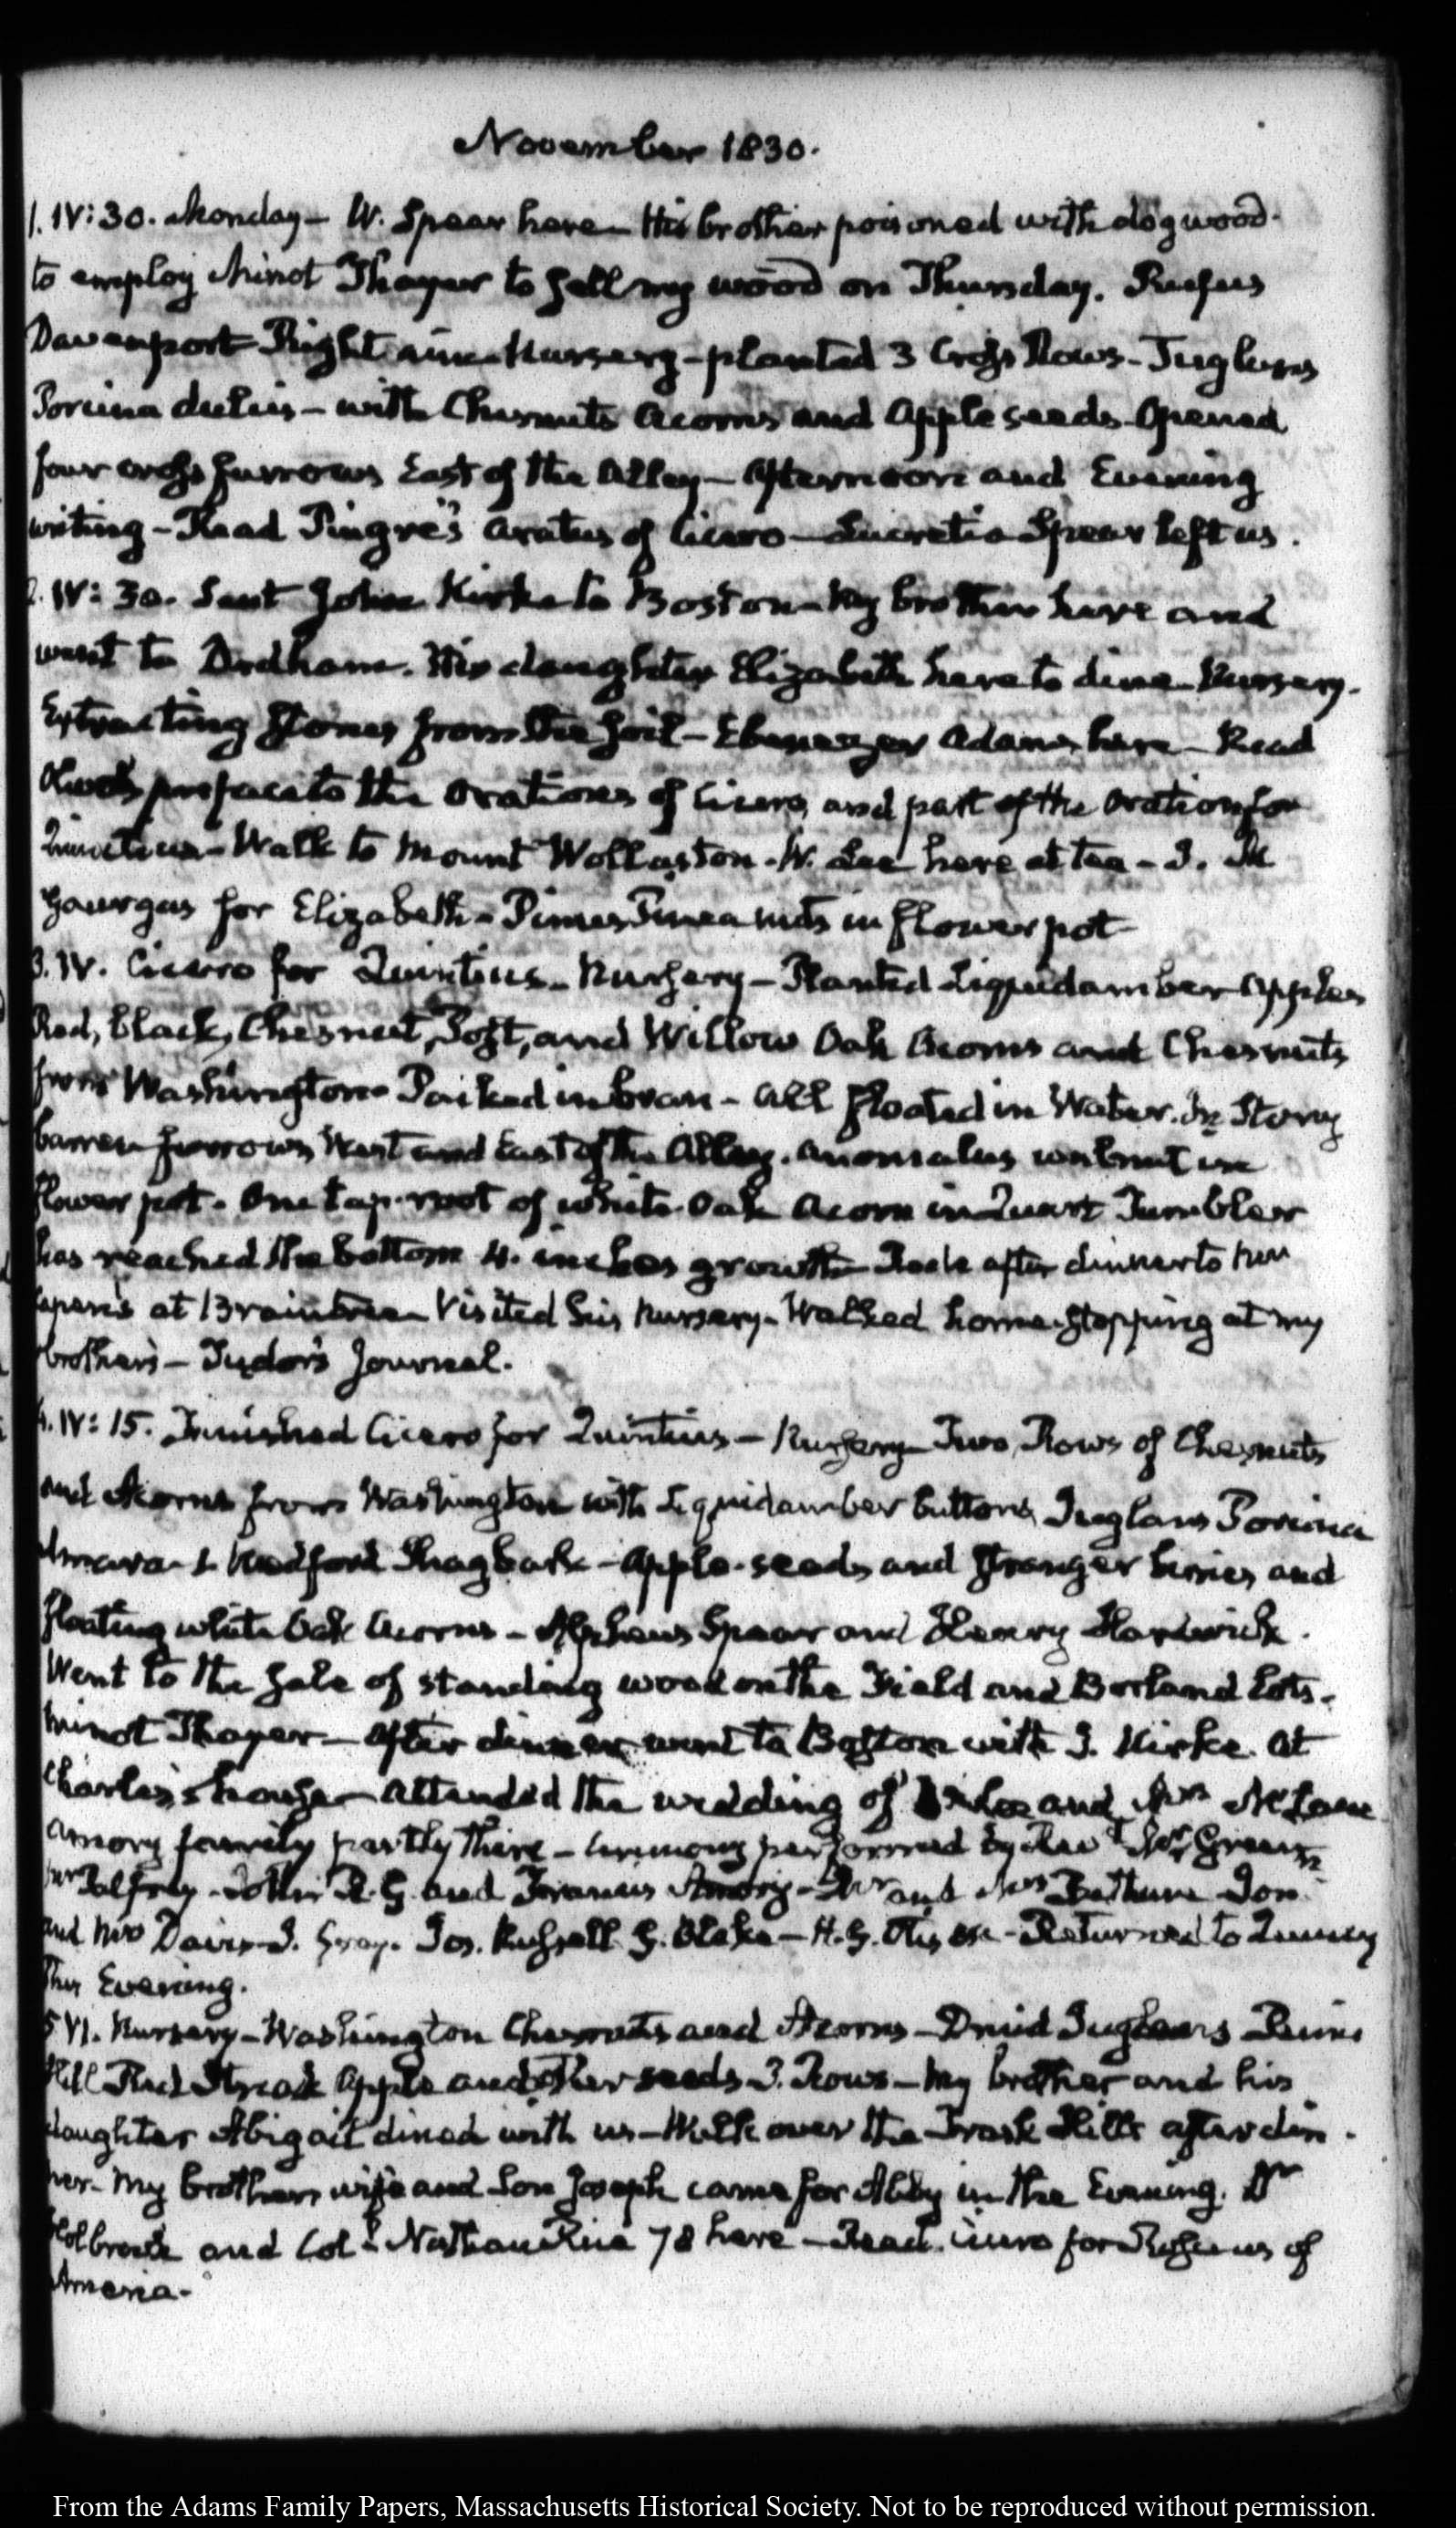 November 1830.
1. IV:30. Monday— W. Spear here— His brother poisoned with dogwood.
to employ Minot Thayer to sell my wood on Thursday. Rufus
Davenport Nursery—planted 3 Cross Rows—Juglans
Porcina dulcis—with Chesnuts Acorns and Apple seeds. Opened
four cross furrows East of the Alley—Afternoon and Evening
writing—Read Pingré's Aratus of Cicero—Lucretia Spear left us.
2. IV:30. Sent John Kirke to Boston—My brother here and
went to Dedham. His daughter Elizabeth here to dine—Nursery.
Extracting stones from the soil—Ebenezer Adams here—Read
Olivet's preface to the Orations of Cicero, and part of the Oration for
Quinctius—Walk to Mount Wollaston—W. Lee here at tea—T. M
Gourgas for Elizabeth—Pinus Pinea nuts in flower pot—
3. IV. Cicero for Quintius—Nursery—Planted Liquidamber Apples
Red, black, Chesnut, Post, and Willow Oak Acorns and Chesnuts
from Washington—Packed in bran—All floated in Water. In Stony
barren furrows West and East of the Alley. Anomalus walnut in
flower pot. One tap-root of white Oak Acorn in Quart Tumbler
has reached the bottom 4. inches growth—Rode after dinner to
at Braintree—Visited his Nursery—Walked home. Stopping at my
brother's—Tudor's Journal.
4. IV:15. Finished Cicero for Quintius—Nursery—Two Rows of Chesnuts
and Acorns from Washington with Liquidamber buttons, Juglans Porcina
Amara & Medford Shagbark—Apple-seeds and Stranger berries and
floating white Oak Acorns—Alpheus Spear and Henry Hardwick.
Went to the sale of standing wood on the Field and Borland Lots.
Minot Thayer—After dinner went to Boston with J. Kirke. At
Charles's house—attended the wedding of and Mrs McLane
Amory family partly there—Ceremony performed by Revd Mr Greenw
Mr Palfrey—John R. G. and Francis Amory—Mr and Mrs Bethune Jon
and Mrs Davis—J. Gray. Jos. Russell. G. Blake—H. G. Otis &c—Returned to Quincy
this Evening.
5 VI. Nursery—Washington Chesnuts and Acorns—Druid Juglans Penns
Hill Red Streak Apple and other seeds 3. Rows—My brother and his
daughter Abigail dined with us—Walk over the Trask Hills after din
ner—My brothers wife and Son Joseph came for Abby in the Evening. Dr
Holbrook and Coll Nathan Rice 78 here—Read Cicero for Roscius of
Ameria.
From the Adams Family Papers, Massachusetts Historical Society. Not to be reproduced without permission.